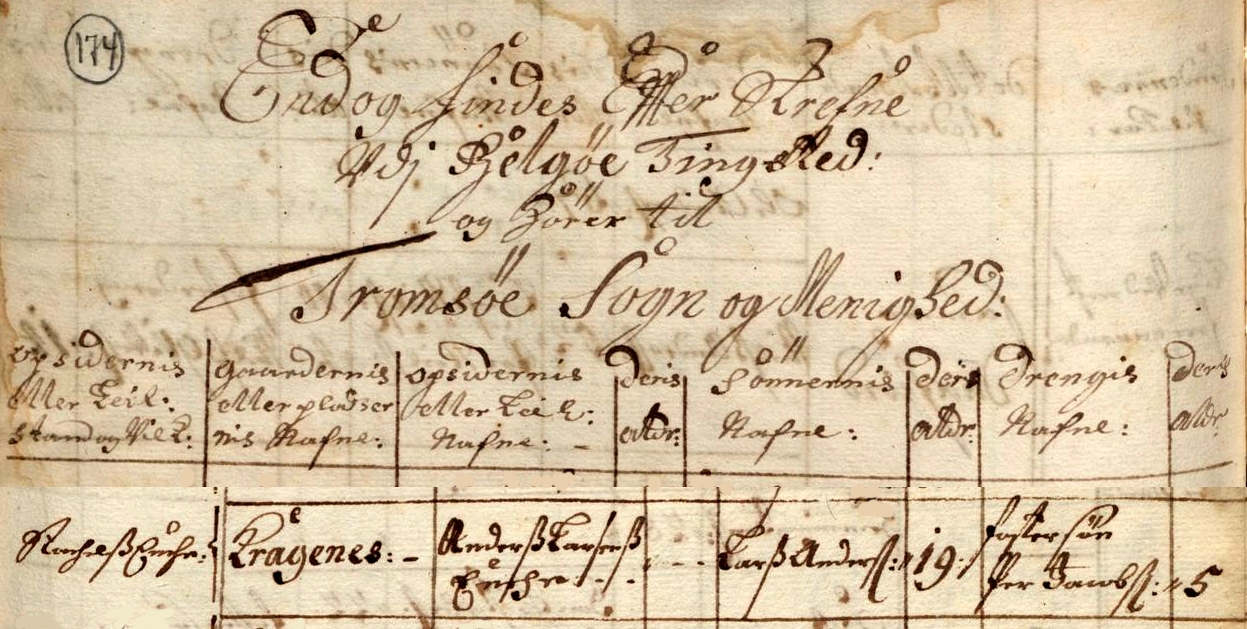 174
End og findes Effter Skrefne
Vdj Helgøe Tingsted:
og Hörer til
Tromsøe Sogn og Menighed:
opsidernis
eller Leil:
stand og Vilk:
gaardernis
eller pladser
nis Nafne:
opsidernis
eller Leil:
Nafne: -
deris
aldr:
Sönnernis
Nafne:
deris
aldr:
Drengis
Nafne:
deris
aldr:
Enche:
Kragenes: -
Anderß Larsens
Enche: - -
Larß Anderß:
19
fostersøn
Per Jacobß:
5